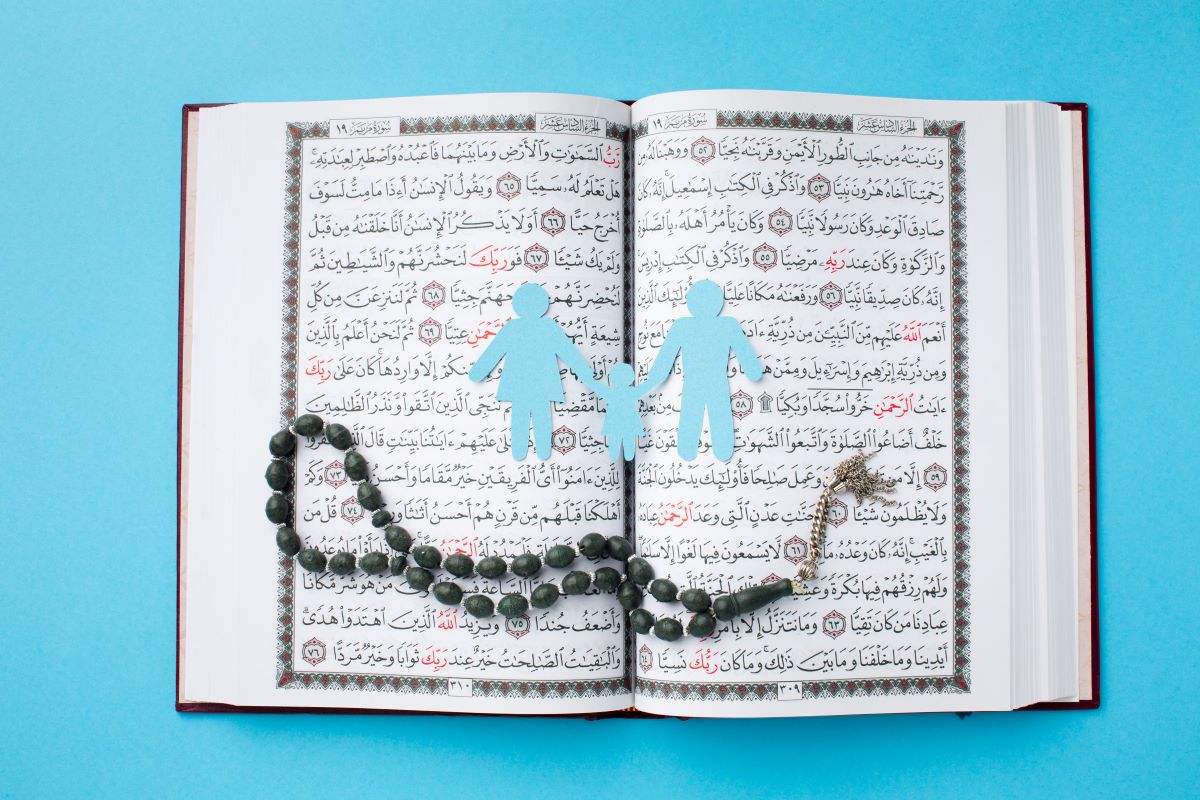 الجزء السادس عشر
سورة مريم ١٩
وَنَٰدَيْنَٰهُ مِن جَانِبِ ٱلطُّورِ ٱلْأَيْمَنِ وَقَرَّبْنَٰهُ نَجِيًّا ٥٢ وَوَهَبْنَا لَهُۥ مِن
رَّحْمَتِنَآ أَخَاهُ هَٰرُونَ نَبِيًّا ٥٣ وَٱذْكُرْ فِى ٱلْكِتَٰبِ إِسْمَٰعِيلَ ۚ إِنَّهُۥ كَانَ
صَادِقَ ٱلْوَعْدِ وَكَانَ رَسُولًا نَّبِيًّا ٥٤ وَكَانَ يَأْمُرُ أَهْلَهُۥ بِٱلصَّلَوٰةِ
وَٱلزَّكَوٰةِ وَكَانَ عِندَ رَبِّهِۦ مَرْضِيًّا ٥٥ وَٱذْكُرْ فِى ٱلْكِتَٰبِ إِدْرِيسَ
إِنَّهُۥ كَانَ صِدِّيقًا نَّبِيًّا ٥٦ وَرَفَعْنَٰهُ مَكَانًا عَلِيًّا أُو۟لَٰٓئِكَ ٱلَّذِينَ
أَنْعَمَ ٱللَّهُ عَلَيْهِم مِّنَ ٱلنَّبِيِّۦنَ مِن ذُرِّيَّةِ ءَادَمَ مَعَ نُوحٍ
وَمِن ذُرِّيَّةِ إِبْرَٰهِيمَ وَإِسْرَٰٓءِيلَ وَمِمَّنْ
ءَايَٰتُ ٱلرَّحْمَٰنِ خَرُّوا۟ سُجَّدًا وَبُكِيًّا ۩ ٥٨ مِنۢ بَعْدِهِمْ
خَلْفٌ أَضَاعُوا۟ ٱلصَّلَوٰةَ وَٱتَّبَعُوا۟ ٱلشَّهَوَٰتِ
٥٩ إِلَّا مَن وَعَمِلَ صَٰلِحًا فَأُو۟لَٰٓئِكَ يَدْخُلُونَ ٱلْجَنَّةَ
وَلَا يُظْلَمُونَ شَيْـًٔا جَنَّٰتِ عَدْنٍ ٱلَّتِى وَعَدَ ٱلرَّحْمَٰنُ عِبَادَهُۥ
بِٱلْغَيْبِ ۚ إِنَّهُۥ كَانَ وَعْدُهُۥ ٦١ لَّا يَسْمَعُونَ فِيهَا لَغْوًا إِلَّا سَلَٰمًا
وَلَهُمْ رِزْقُهُمْ فِيهَا بُكْرَةً وَعَشِيًّا ٱلْجَنَّةُ
عِبَادِنَا مَن كَانَ تَقِيًّا ٦٣ وَمَا نَتَنَزَّلُ إِلَّا بِأَمْرِ
أَيْدِينَا وَمَا خَلْفَنَا وَمَا بَيْنَ ذَٰلِكَ ۚ وَمَا كَانَ رَبُّكَ نَسِيًّا ٦٤
٣٠٩
الجزء السادس عشر
سورة مريم ١٩
رَّبُّ ٱلسَّمَٰوَٰتِ وَٱلْأَرْضِ وَمَا بَيْنَهُمَا فَٱعْبُدْهُ وَٱصْطَبِرْ لِعِبَٰدَتِهِۦ ۚ
هَلْ تَعْلَمُ لَهُۥ سَمِيًّا ٦٥ وَيَقُولُ ٱلْإِنسَٰنُ أَءِذَا مَا مِتُّ لَسَوْفَ
أُخْرَجُ حَيًّا ٦٦ أَوَلَا يَذْكُرُ ٱلْإِنسَٰنُ أَنَّا خَلَقْنَٰهُ مِن قَبْلُ
وَلَمْ يَكُ شَيْـًٔا ٦٧ فَوَرَبِّكَ لَنَحْشُرَنَّهُمْ وَٱلشَّيَٰطِينَ ثُمَّ
لَنُحْضِرَنَّهُمْ جَهَنَّمَ جِثِيًّا ٦٨ ثُمَّ لَنَنزِعَنَّ مِن كُلِّ
شِيعَةٍ أَيُّهُمْ ٱلرَّحْمَٰنِ عِتِيًّا ٦٩ ثُمَّ لَنَحْنُ أَعْلَمُ بِٱلَّذِينَ
هُمْ أَوْلَىٰ مِّنكُمْ إِلَّا وَارِدُهَا ۚ كَانَ عَلَىٰ رَبِّكَ
مَّقْضِيًّا نُنَجِّى ٱلَّذِينَ ٱتَّقَوا۟ وَّنَذَرُ ٱلظَّٰلِمِينَ
جِثِيًّا ٧٢ عَلَيْهِمْ ءَايَٰتُنَا بَيِّنَٰتٍ قَالَ ٱلَّذِينَ كَفَرُوا۟
لِلَّذِينَ ءَامَنُوٓا۟ أَىُّ ٱلْفَرِيقَيْنِ خَيْرٌ مَّقَامًا وَأَحْسَنُ ٧٣ وَكَمْ
أَهْلَكْنَا قَبْلَهُم مِّن قَرْنٍ هُمْ أَحْسَنُ أَثَٰثًا ٧٤ قُلْ مَن
كَانَ ٱلرَّحْمَٰنُ
ٱلسَّاعَةَ مَنْ هُوَ شَرٌّ مَّكَانًا
وَأَضْعَفُ جُندًا ٧٥ وَيَزِيدُ ٱللَّهُ ٱلَّذِينَ ٱهْتَدَوْا۟ هُدًى ۗ
وَٱلْبَٰقِيَٰتُ ٱلصَّٰلِحَٰتُ خَيْرٌ عِندَ رَبِّكَ ثَوَابًا وَخَيْرٌ مَّرَدًّا ٧٦
٣١٠